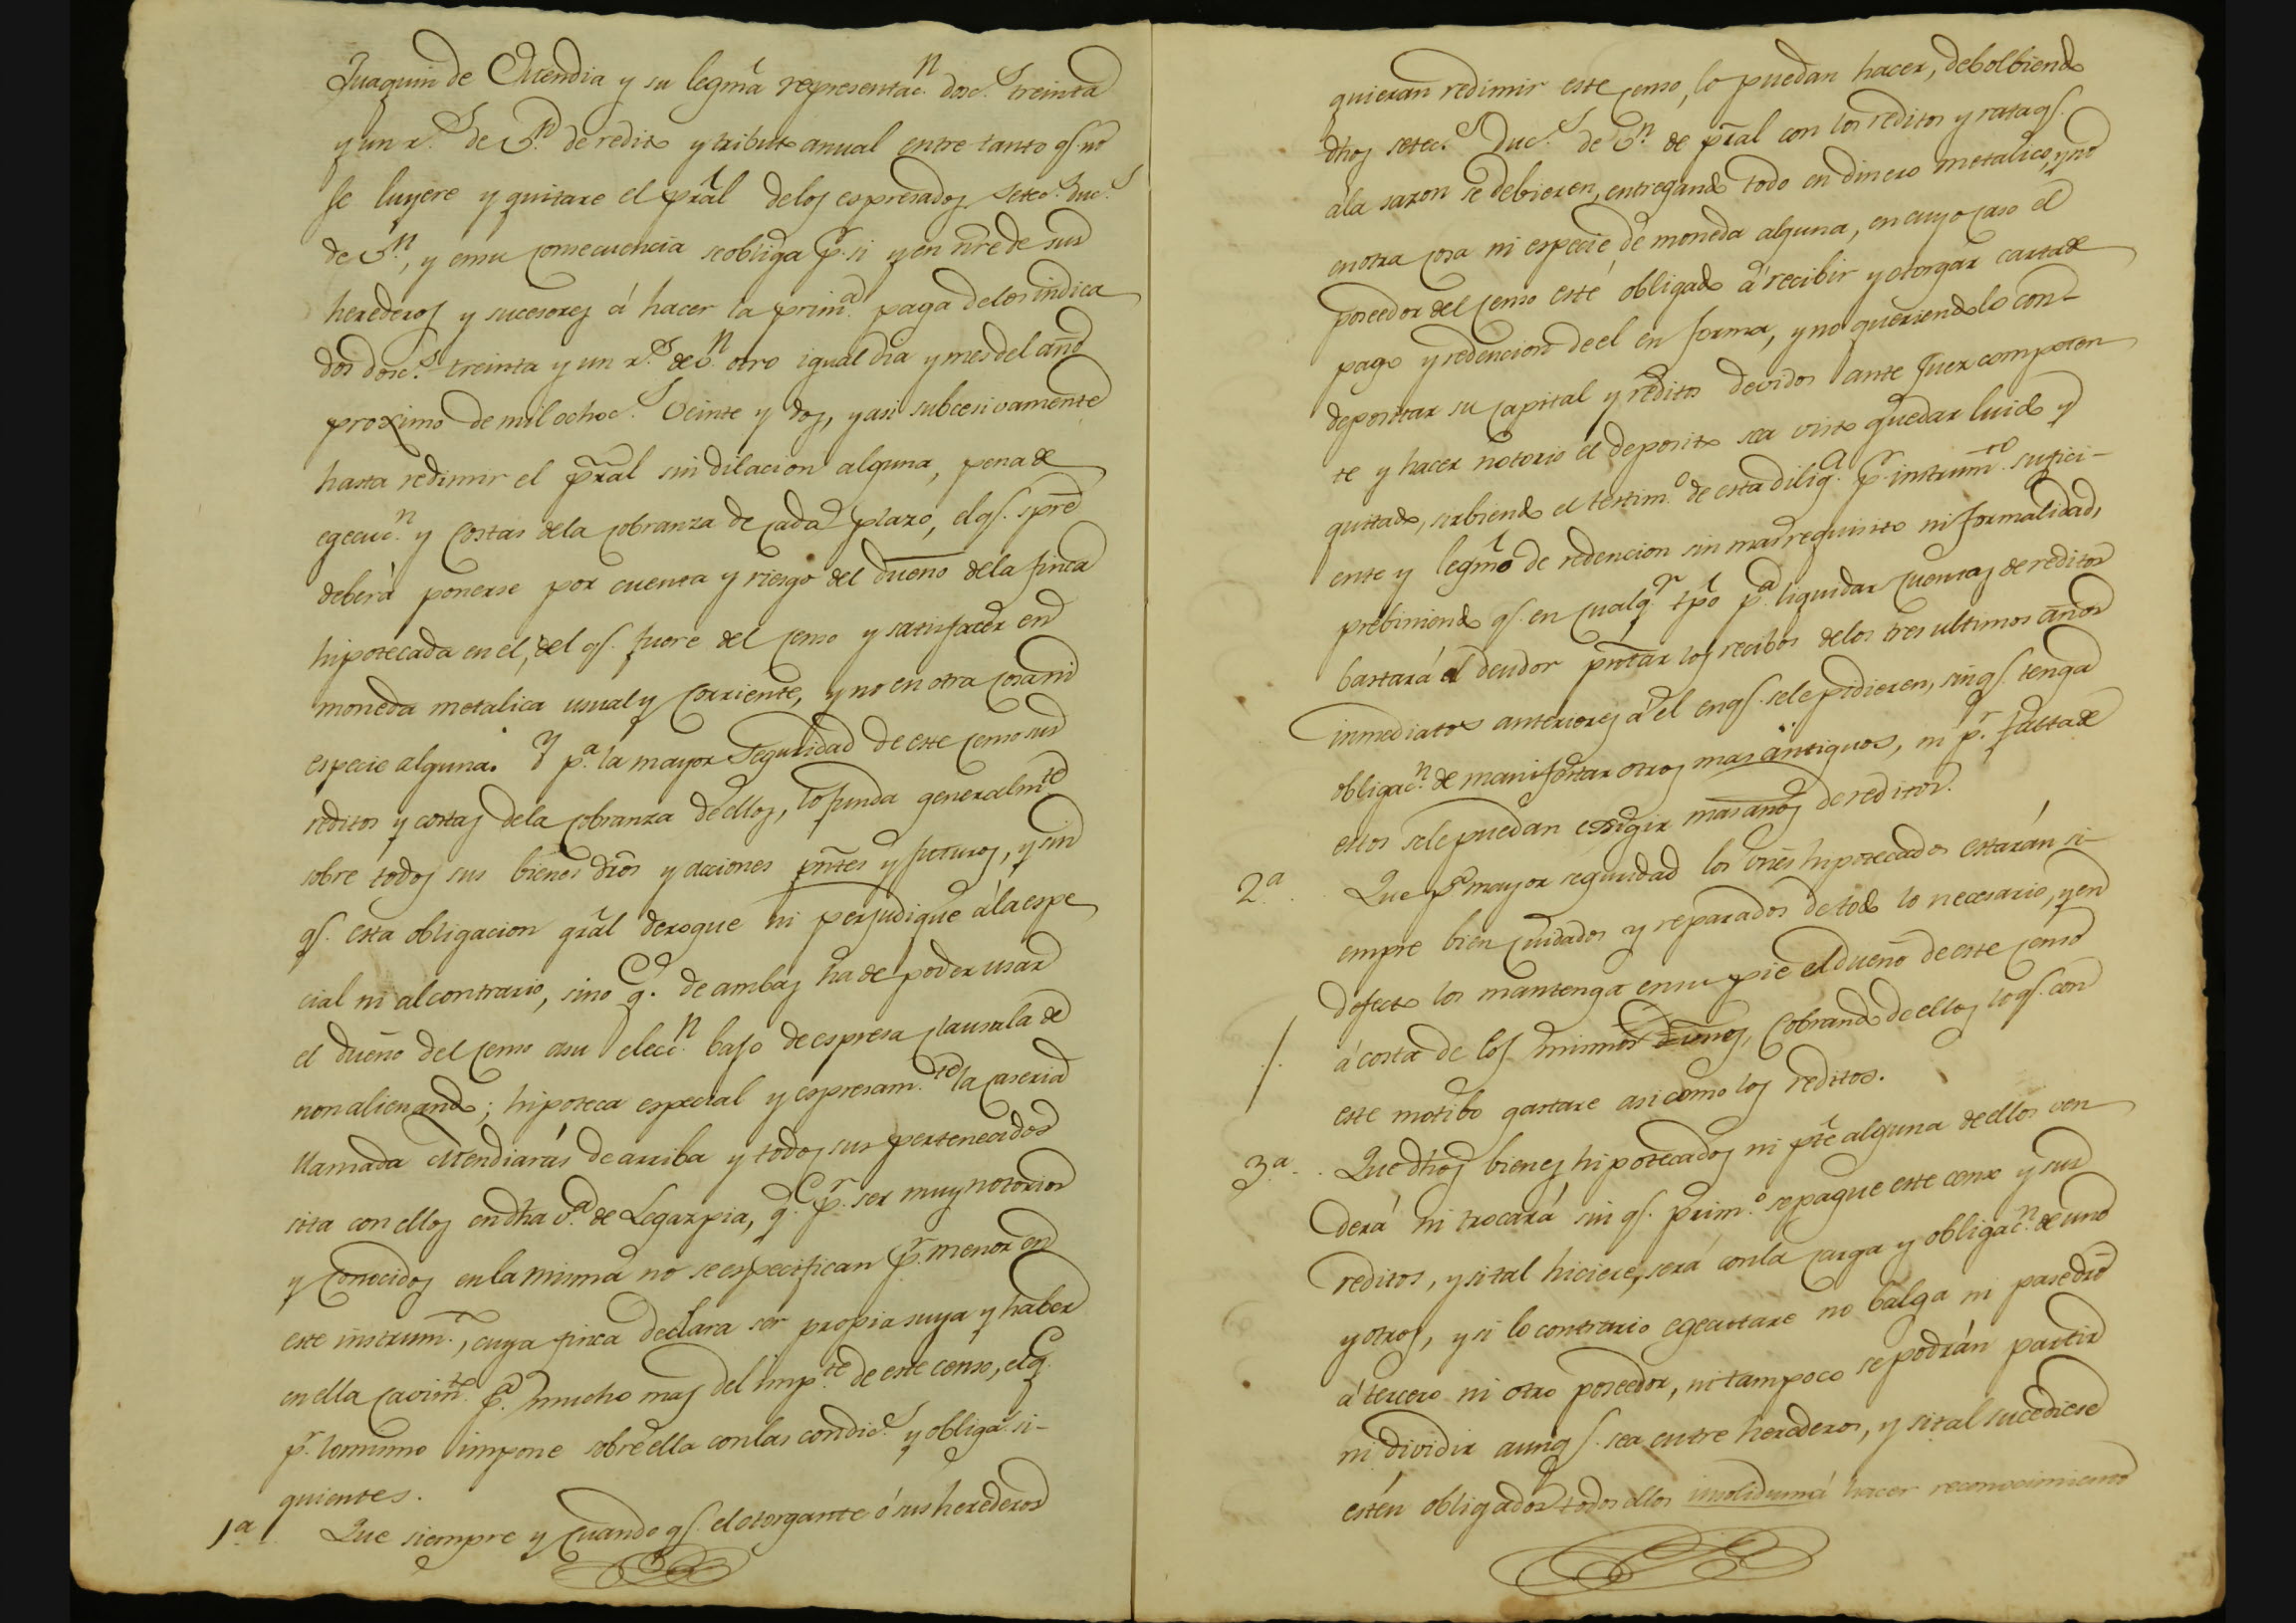 Juaquin de Mendia y su legma representac.n dosc.s treinta
y un r.s de v.n de redito y tributo anual entre tanto q.e no
se luyere y quitare el pral delos espresados setec.s duc.s
de v.n, y ensu consecuencia se obliga p.r si y en nre de sus
herederos y sucesores á hacer la prim.a paga delos indica
dos dosc.s treinta y un r.s de v.n otro igual dia y mes del año
proximo de mil ochoc.s veinte y dos, y asi subcesivamente
hasta redimir el pral sin dilacion alguna, pena de
egecuc.n y costas dela cobranza de cada plazo, el q.e spre
deberá ponerse por cuenta y riesgo del dueño dela finca
hipotecada en el, del q.e fuere del censo y satisfacer en
moneda metalica usual y corriente, y no en otra cosa ni
especie alguna. Y p.a la mayor seguridad de este censo sus
reditos y costas dela cobranza de ellos, lo funda generalm.te
sobre todos sus bienes dros y acciones pntes y futuros, y sin
q.e esta obligacion gral derogue ni perjudique á la espe
cial ni al contrario, sino q.e de ambas ha de poder usar
el dueño del censo asu elecc.n bajo de espresa clausula de
non alienando; hipoteca especial y espresam.te la caseria
llamada Mendiarás de arriba y todos sus pertenecidos
sita con ellos en dha v.a de Legazpia, q.e p.r ser muy notorios
y conocidos en la misma no se especifican p.r menor en
este instrum.to, cuya finca declara ser propia suya y haber
en ella cavim.to p.a mucho mas del imp.te de este censo, el q.e
p.r lo mismo impone sobre ella con las condic.s y obligac.s si-
guientes.
1.a Que siempre y cuando q.e el otorgante ó sus herederos
quieran redimir este censo, lo puedan hacer, debolbiendo
dhos setec.s duc.s de v.n de pral con los reditos y rata q.e
á la sazon se debieren, entregando todo en dinero metalico, y no
en otra cosa ni especie de moneda alguna, en cuyo caso el
poseedor del censo esté obligado á recibir y otorgar carta de
pago y redencion de el en forma, y no queriendolo con-
depositar su capital y réditos devidos ante Juez competen
te y hacer notorio el deposito sea visto quedar luido y
quitado, sirbiendo el testim.o de esta dilig.a p.r instrum.to sufici-
ente y legmo de redencion sin mas requisito ni formalidad,
prebiniendo q.e en cualq.r tpo p.a liquidar cuentas de reditos
bastará al deudor pntar los recibos delos tres ultimos años
inmediatos anteriores á el en q.e sele pidieren, sin q.e tenga
obligac.n de manifestar otros mas antiguos, ni p.r falta de
estos sele puedan exigir mas años de reditos.
2.a Que p.a mayor seguridad los vnes hipotecados estarán si-
empre bien cuidados y reparados de todo lo necesario, y en
defecto los mantenga ensu pie el dueño de este censo
á costa de los mismos, cobrando de ellos lo q.e con
este motibo gastare asi como los reditos.
3.a Que dhos bienes hipotecados ni pte alguna de ellos ven
derá ni trocará sin q.e prim.o se pague este censo y sus
reditos, y si tal hiciere, será con la carga y obligac.n de uno
y otros, y si lo contrario egecutare no balga ni pase dro
á tercero ni otro poseedor, ni tampoco se podrán partir
ni dividir aunq.e sea entre herederos, y si tal sucediese
estén obligados todos ellos insolidum á hacer reconocimiento